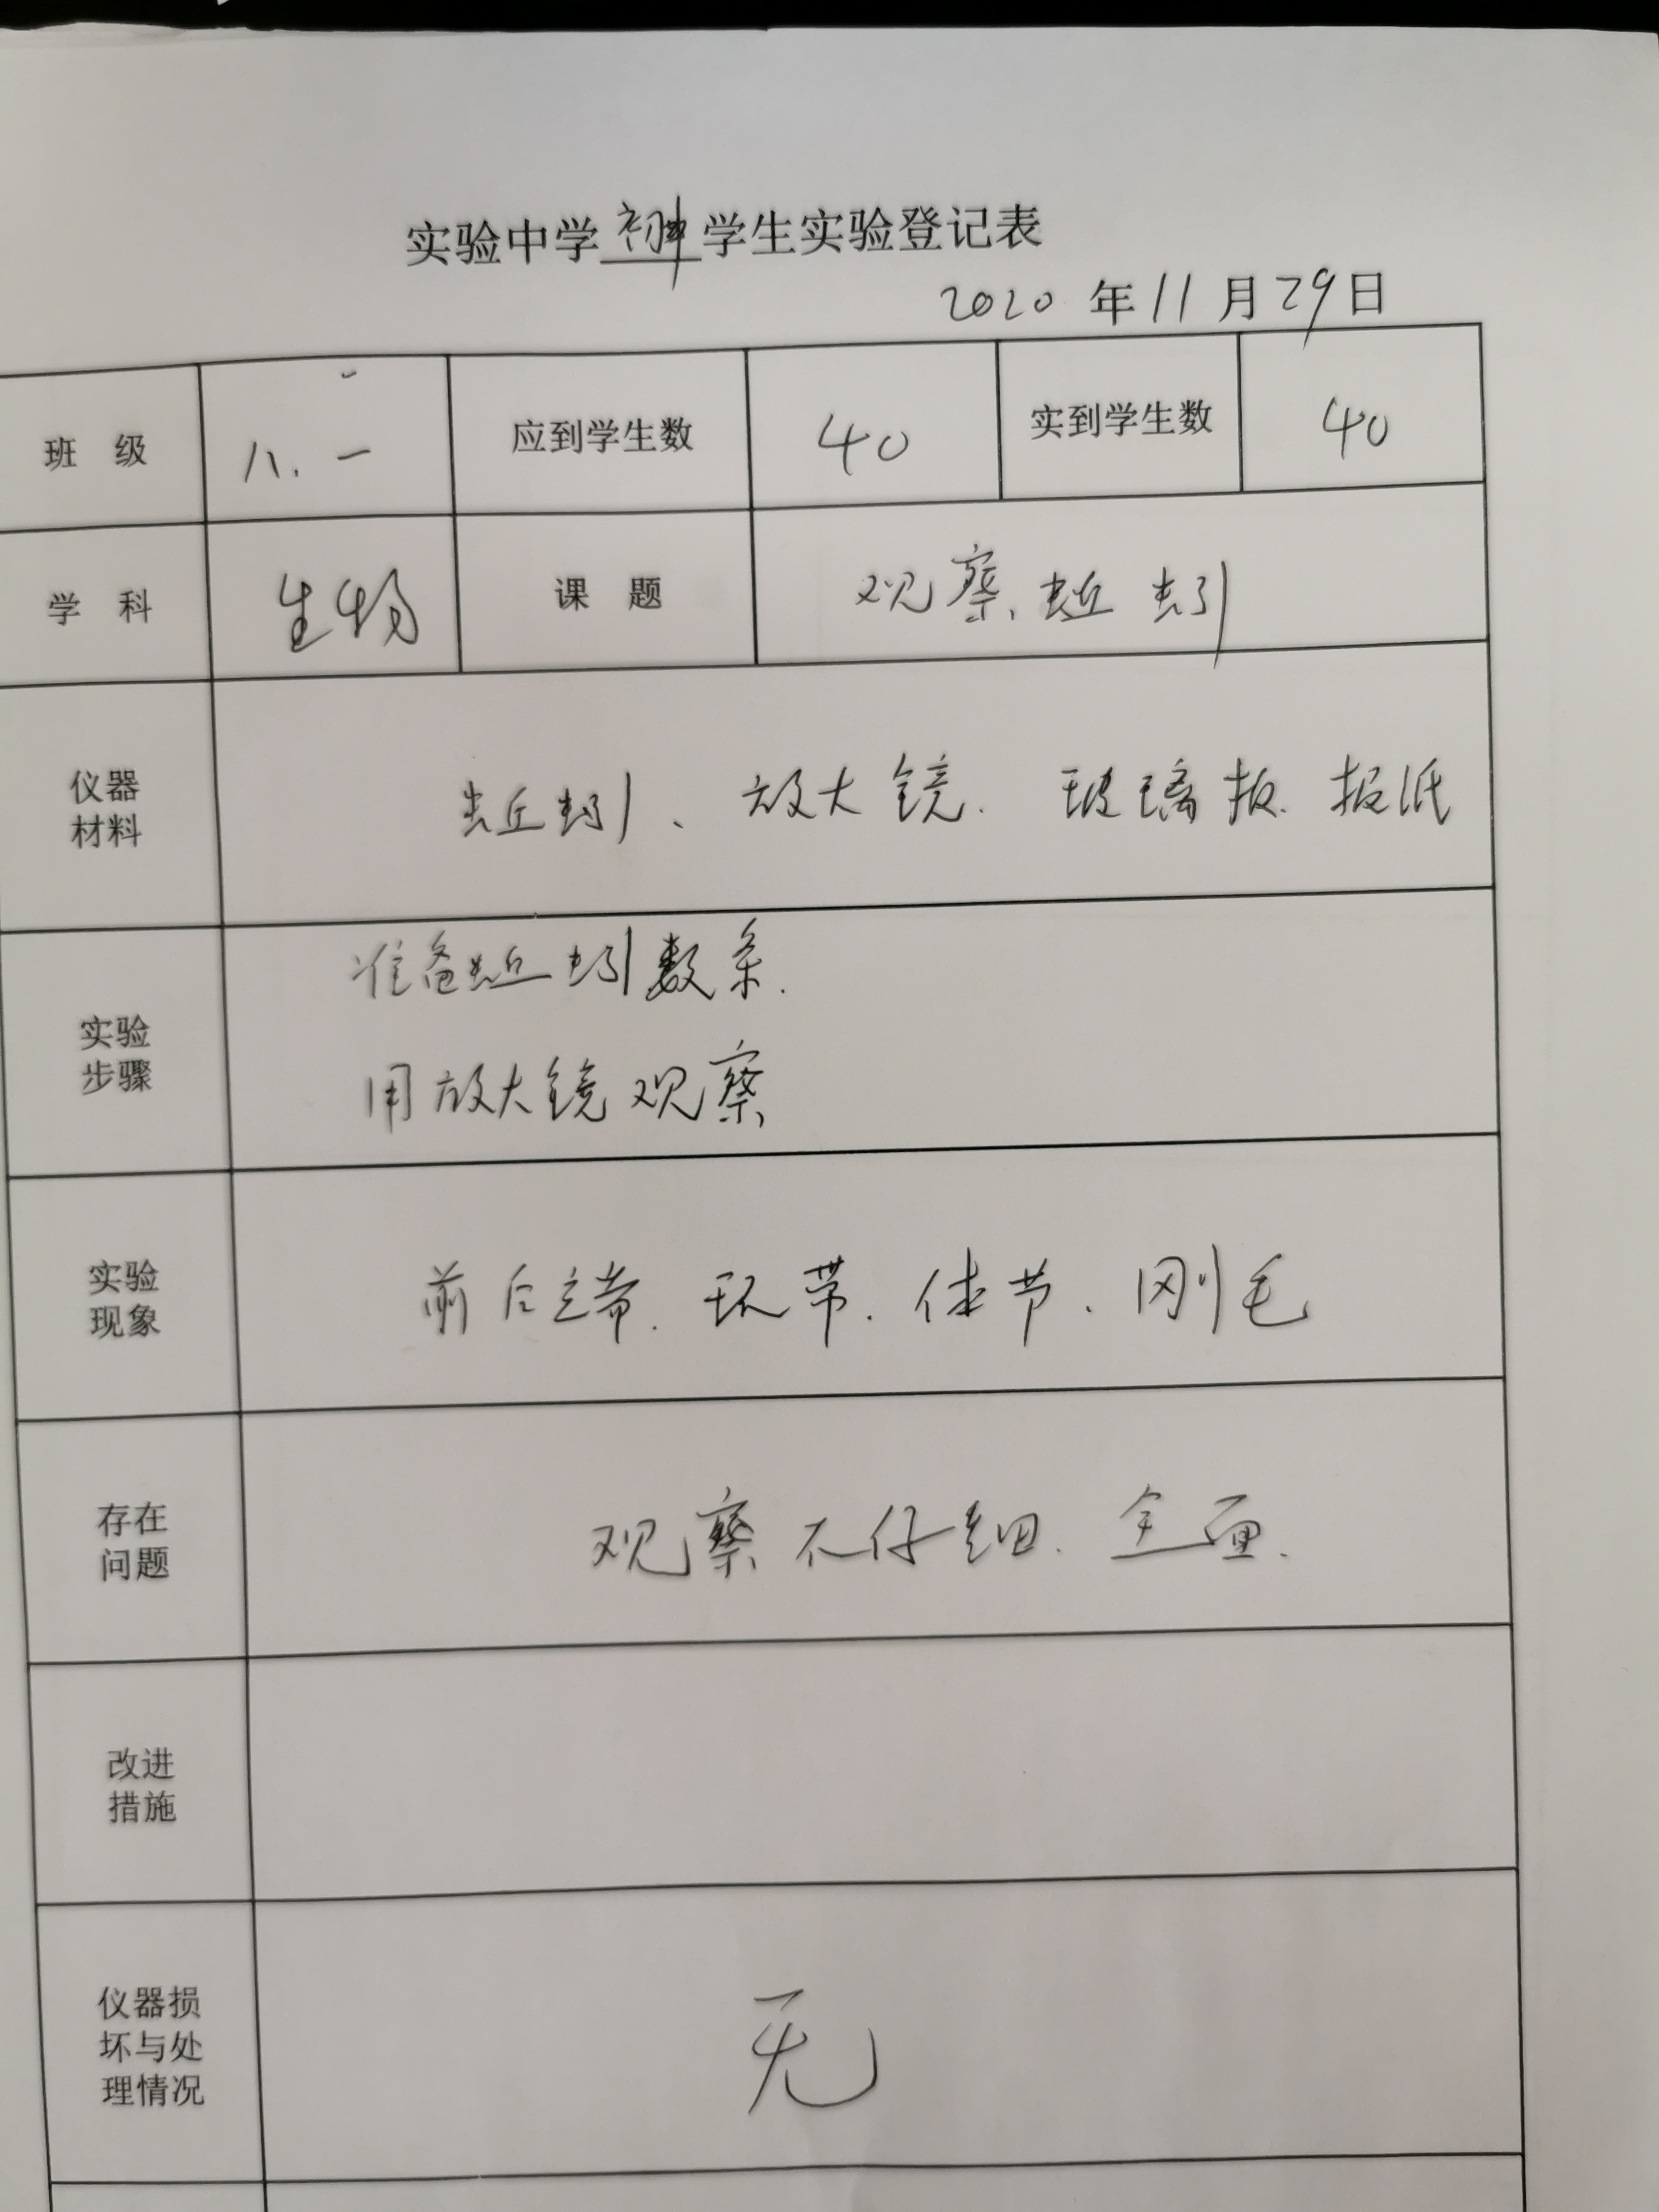 实验中学初中学生实验登记表
2020 年 11 月 29 日
班 级 八.一 应到学生数 40 实到学生数 40
学 科 生物 课 题 观察蚯蚓
仪器
材料
蚯蚓、放大镜.玻璃板.报纸
实验
步骤
准备蚯蚓数条.
用放大镜观察
实验
现象
前后端.环带.体节.刚毛
存在
问题
观察不仔细.全面.
改进
措施
仪器损
坏与处
理情况
无